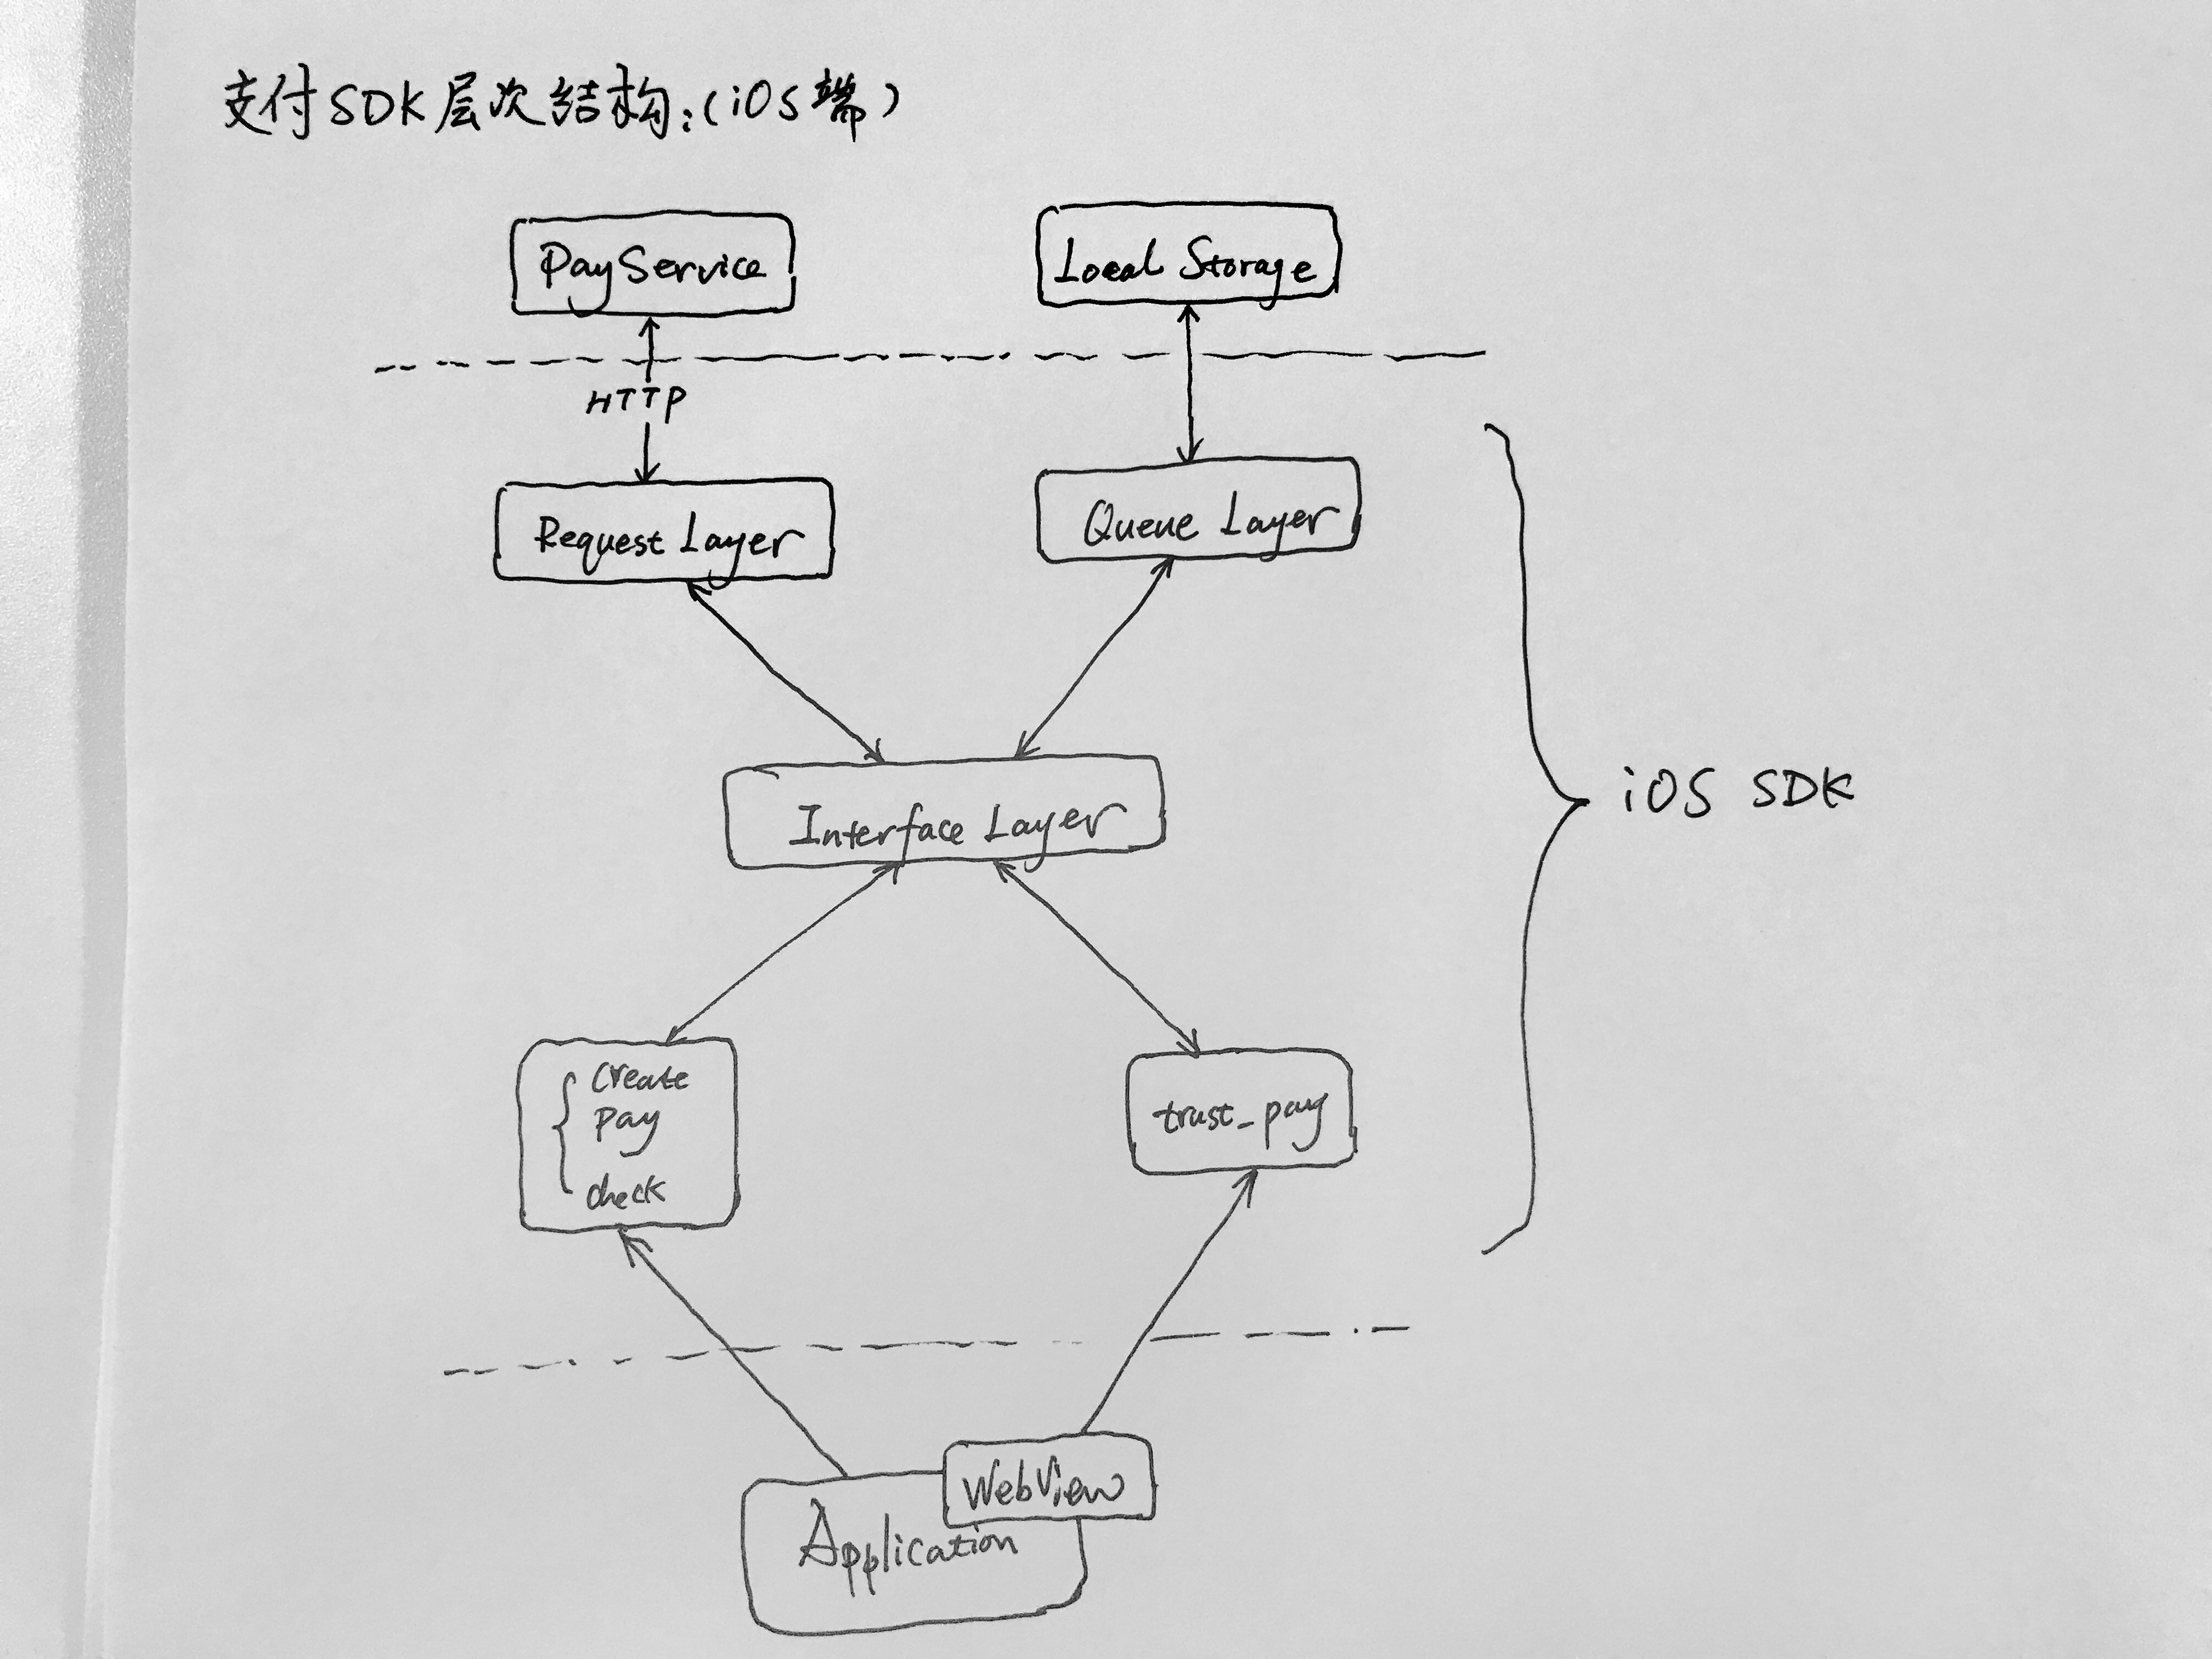 支付SDK层次结构:(iOS端)
PayService
Local Storage
HTTP
Request Layer
Queue Layer
Interface Layer
iOS SDK
Create
Pay
check
trust_pay
WebView
Application